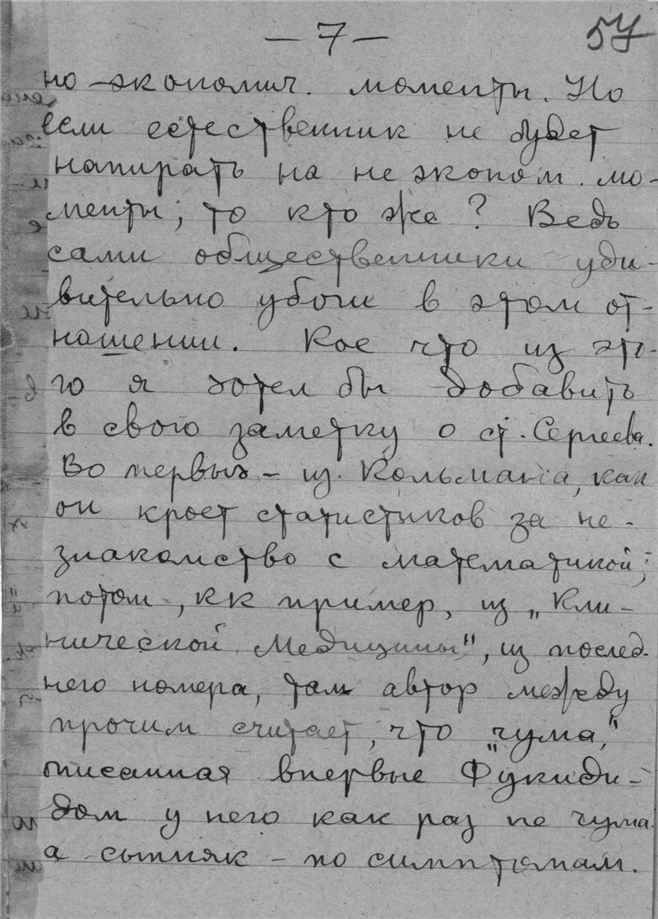 — 7 —
57
но-экономич. моменты. Но
если естественник не будет
напирать на не эконом. мо-
менты, то кто же? Ведь
сами общественники уди-
вительно убоги в этом от-
ношении. Кое что из это-
го я хотел бы добавить
в свою заметку о ст. Сергеева.
Во первых – из Кольмана, как
он кроет статистиков за не-
знакомство с математикой;
потом, кк пример, из „Кли-
нической Медицины", из послед-
него номера, там автор между
прочим считает, что „чума,"
описанная впервые Фукиди-
дом у него как раз не чума
а сыпняк – по симптомам.